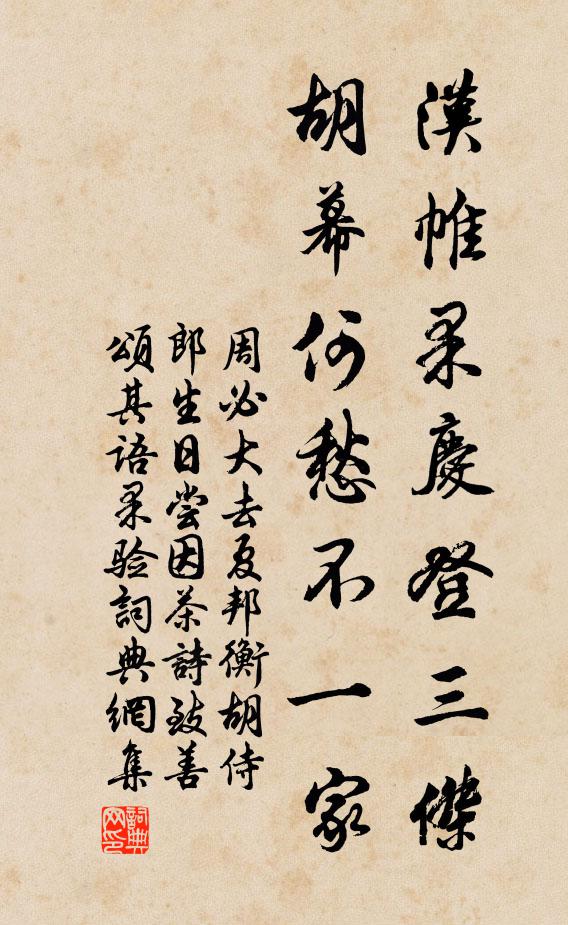 漢帷果慶登三傑
胡幕何愁不一家
周必大去夏邦衡胡侍
郎生日嘗因茶詩致善
頌其語果验詞典網集
詞典網印